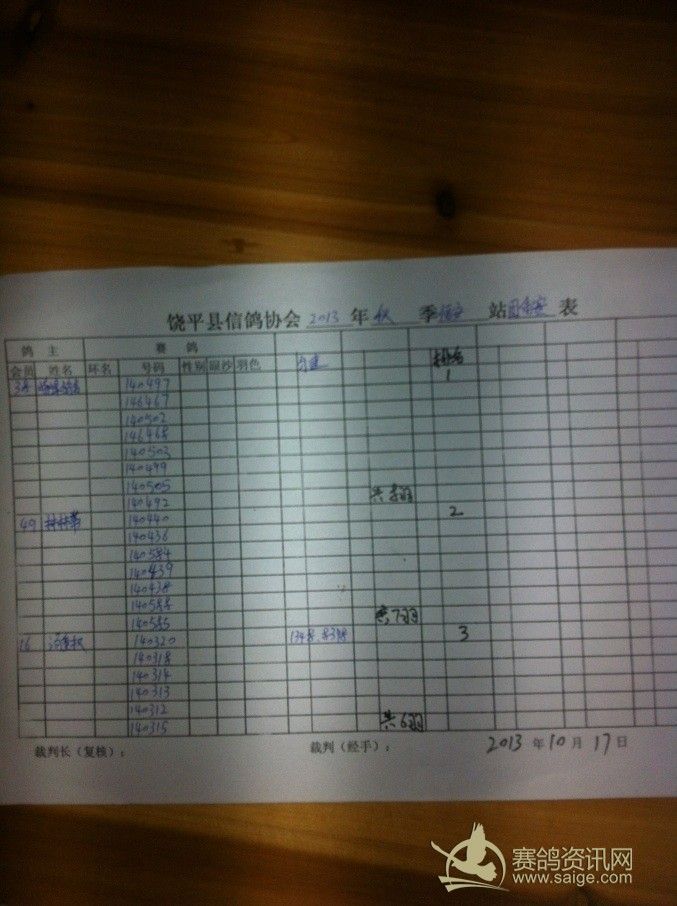 饶平县信鸽协会 2013 年 秋 季 站 表
鸽 主 赛 鸽
会员 姓名 环名 号码 性别 眼沙 羽色 排名
140497 1
146467
140502
146468
140503
140499
140505
140492 共8羽
49 140440 2
140436
140584
140439
140438
140588
140585 共7羽
16 140320 3
140318
140314
140313
140312
140315 共6羽
裁判长（复核）： 裁判（经手）： 2013 年 10 月 17 日
赛鸽资讯网
www.saige.com